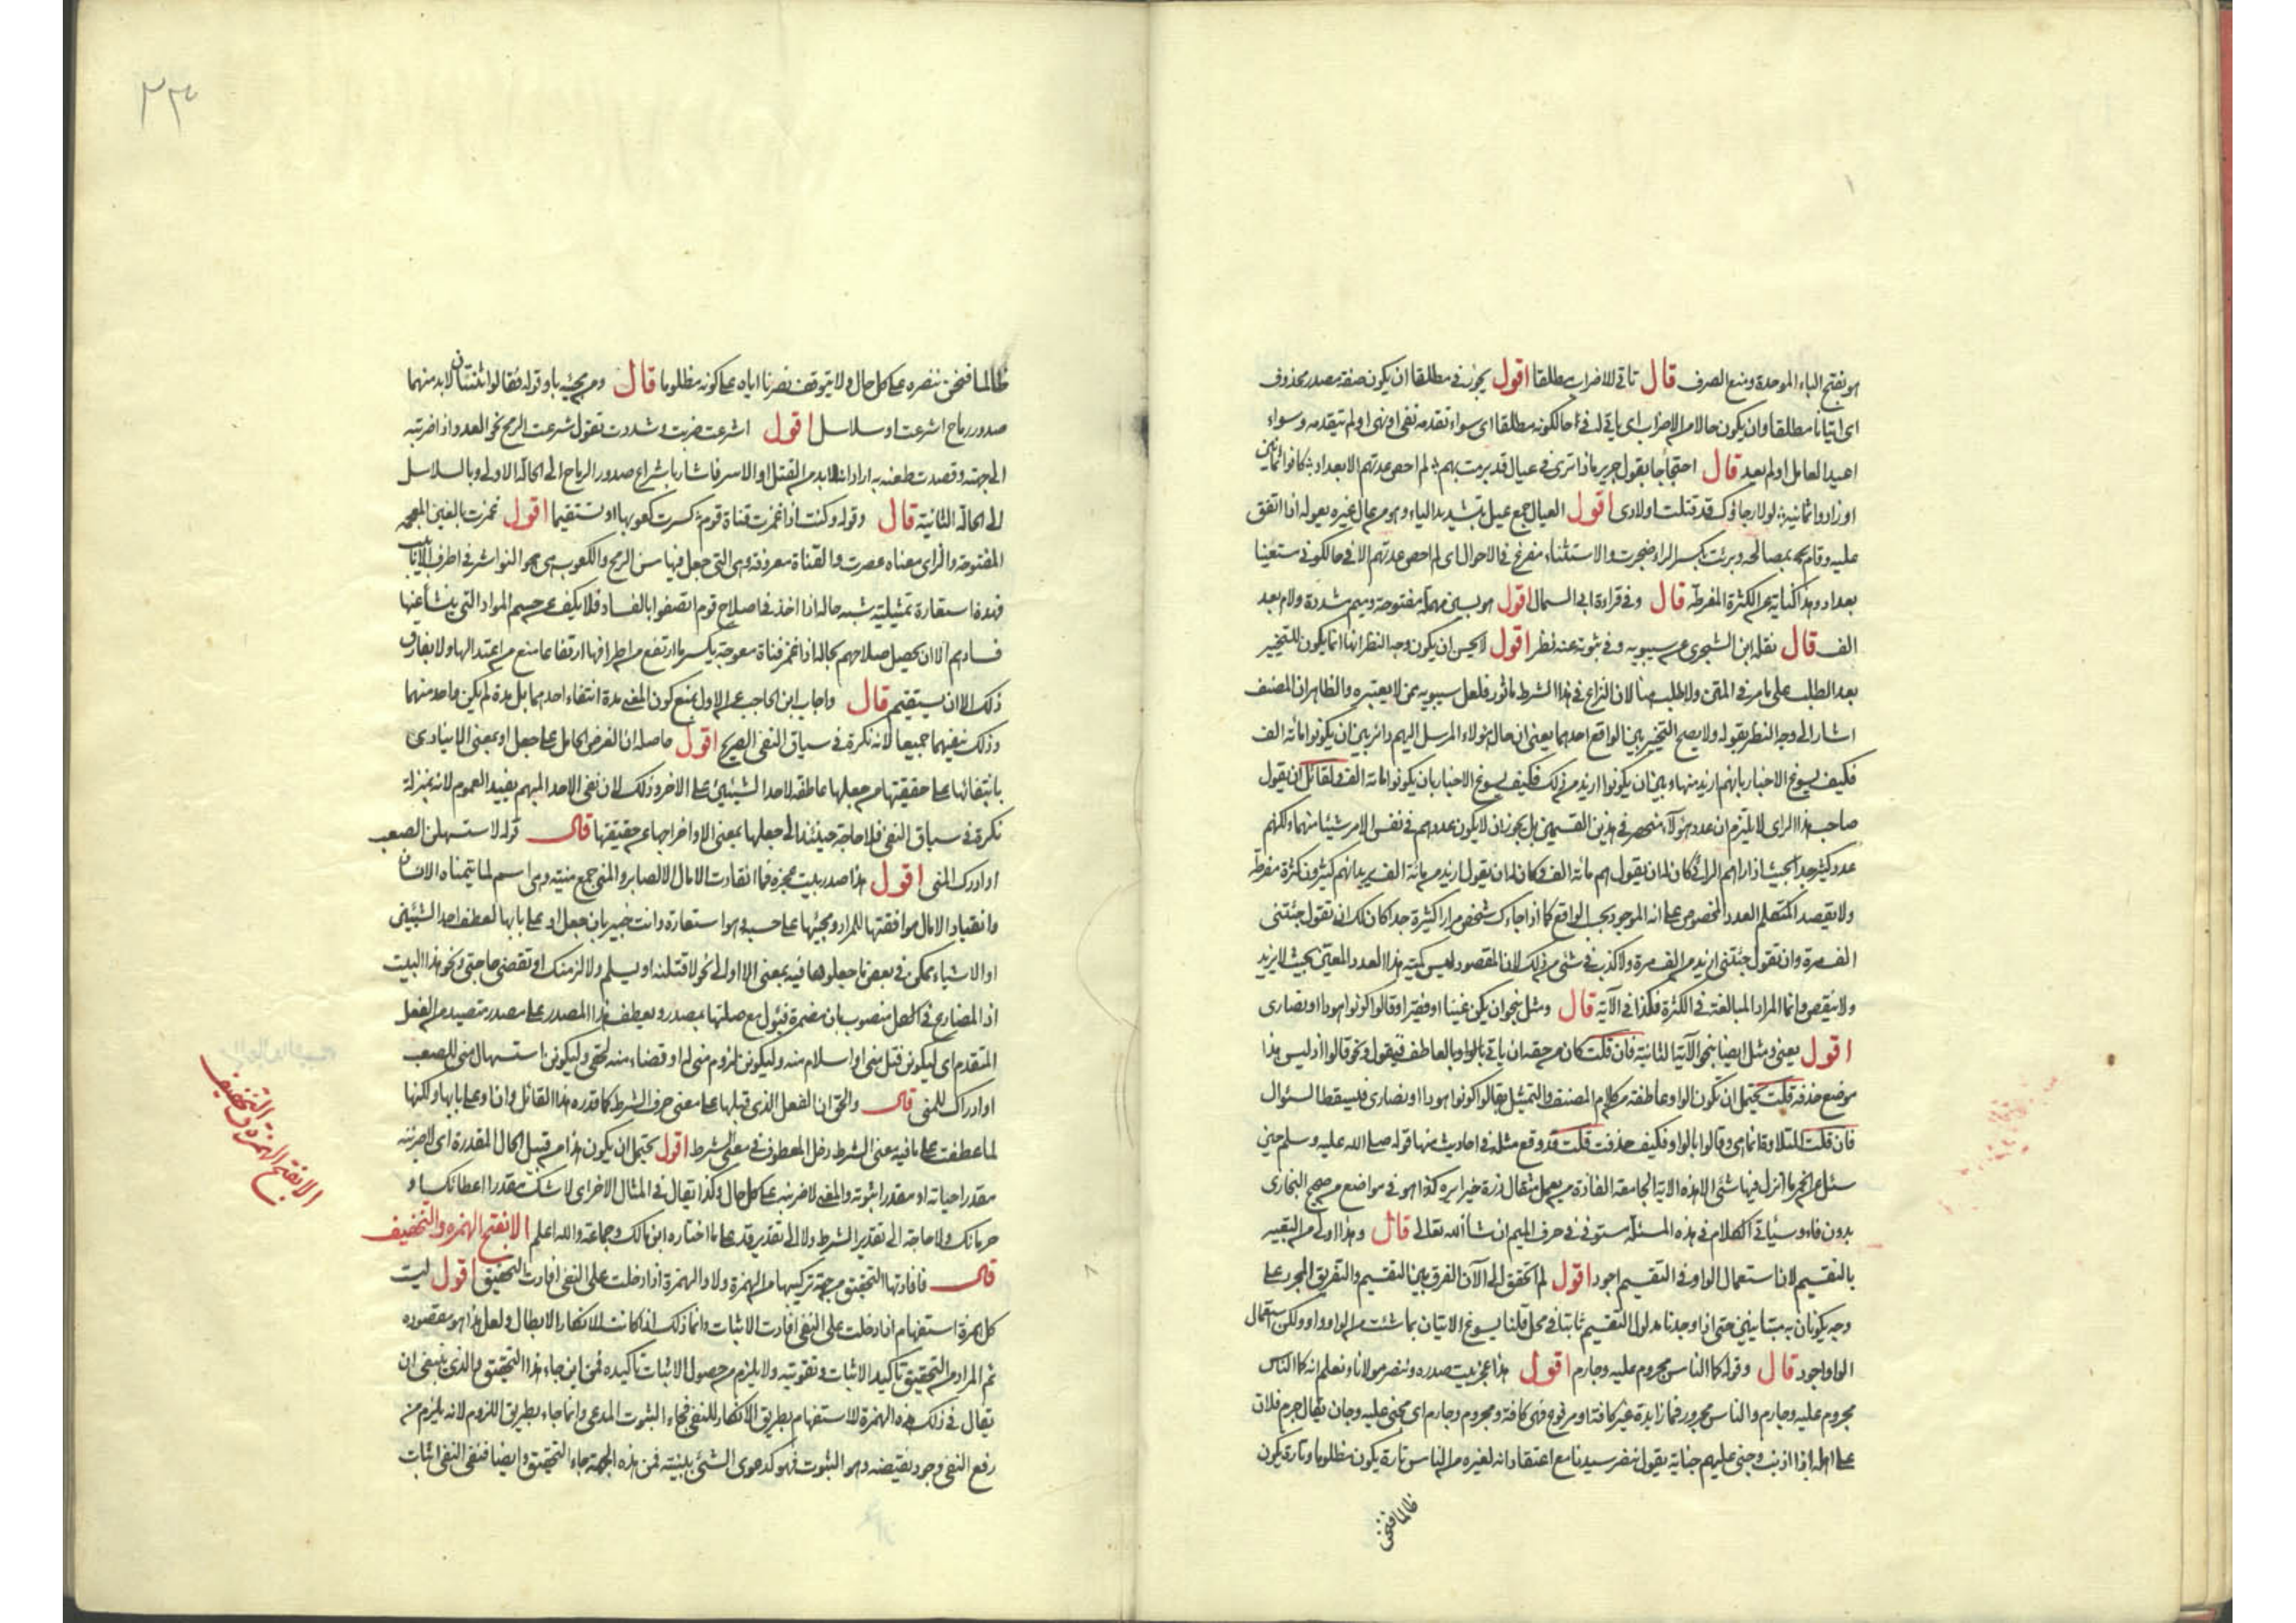 هو بفتح الباء الموحدة ومنع الصرف قال تاتى للاضراب مطلقا اقول يجوز فى مطلقا ان يكون صفة مصدر محذوف
اى اتيانا مطلقا وان يكون حالا من الاضراب اى ياتى له فى حال كونه مطلقا اى سواء تقدمه نفى او نهى او لم يتقدمه وسواء
اعيد العامل او لم يعد قال احتجاجا بقول جرير ماذا ترى فى عيال قد برمت بهم لم احص عدتهم الا بعداد كانوا ثمانين
او زادوا ثمانية لولا رجاؤك قد قتلت اولادى اقول العيال جمع عيل بتشديد الياء وهو من عال غيره يعوله اذا انفق
عليه وقام بمصالحه وبرمت بكسر الراء ضجرت والاستثناء مفرغ فى الاحوال اى لم احص عدتهم الا فى حال كونى مستعينا
بعداد وهذا كناية عن الكثرة المفرطة قال وفى قراءة ابى السمال اقول هو بسين مهملة مفتوحة وميم مشددة ولام بعد
الف قال نقله ابن الشجرى عن سيبويه وفى ثبوته عنه نظر اقول لا يحسن ان يكون وجه النظر انها انما يكون للتخيير
بعد الطلب على ما مر فى المتن ولا طلب هنا لان النزاع فى هذا الشرط ماثور فلعل سيبويه ممن لا يعتبره والظاهر ان المصنف
اشار الى وجه النظر بقوله ولا يصح التخيير بين الواقع احدهما يعنى ان حال هؤلاء المرسل اليهم دائر بين ان يكونوا مائة الف
فكيف يسوغ الاخبار بانهم ازيد منها وبين ان يكونوا ازيد من ذلك فكيف يسوغ الاخبار بان يكونوا مائة الف ولقائل ان يقول
صاحب هذا الراى لا يلتزم ان عدد هؤلاء منحصر فى هذين القسمين بل يجوز ان لا يكون عددهم فى نفس الامر شيئا منهما ولكنهم
عدد كثير جدا بحيث اذا راهم الرائى كان له ان يقول هم مائة الف وكان له ان يقول ازيد من مائة الف يريد انهم كثيرون كثرة مفرطة
ولا يقصد المتكلم العدد المخصوص على انه الموجود بحسب الواقع كما اذا جاءك شخص مرارا كثيرة جدا كان لك ان تقول جئتنى
الف مرة وان تقول جئتنى ازيد من الف مرة ولا كذب فى شئ من ذلك لان المقصود ليس كمية هذا العدد المعين بحيث لا يزيد
ولا ينقص وانما المراد المبالغة فى الكثرة فكذا فى الآية قال ومثل بنحو ان يكن غنيا او فقيرا وقالوا كونوا هودا او نصارى
اقول يعنى ومثل ايضا بنحو الآية الثانية فان قلت كان من حقه ان ياتى بالواو بالعاطف فيقول ونحو قالوا اذ ليس هذا
موضع حذفه قلت يحتمل ان يكون الواو عاطفة من كلام المصنف والتمثيل بقالوا كونوا هودا او نصارى فيسقط السئوال
فان قلت التلاوة انما هى وقالوا بالواو فكيف حذفت قلت قد وقع مثله فى احاديث منها قوله صلى الله عليه وسلم حين
سئل عن الحمر ما انزل فيها شئ الا هذه الاية الجامعة الفاذة من يعمل مثقال ذرة خيرا يره كذا هو فى مواضع من صحيح البخارى
بدون فاء وسياتى الكلام فى هذه المسئلة مستوفى فى حرف الميم ان شأ الله تعالى قال وهذا اولى من التعبير
بالتقسيم لان استعمال الواو فى التقسيم اجود اقول لم اتحقق الى الآن الفرق بين التقسيم والتفريق المجرد على
وجه يكونان به متباينين حتى اذا وجدنا مدلول التقسيم ثابتا فى محل قلنا يسوغ الاتيان بما شئت من الواو واو ولكن استعمال
الواو اجود قال وقوله كما الناس مجروم عليه وجارم اقول هذا عجز بيت صدره وننصر مولانا ونعلم انه كما الناس
مجروم عليه وجارم والناس مجرور فما زايدة غير كافة او مرفوع فهى كافة ومجروم وجارم اى مجنى عليه وجان يقال جرم فلان
على اهله اذا اذنب وجنى عليهم جناية يقول ننصر سيدنا مع اعتقادنا انه لغيره من الناس تارة يكون مظلوما وتارة يكون
ظالما فنحن
٢٣
ظالما فنحن ننصره على كل حال ولا يتوقف نصرنا اياه على كونه مظلوما قال ومن مجيئه باو قوله فقالوا لنا ثنتان لابد منهما
صدور رماح اشرعت او سلاسل اقول اشرعت ضربت وشددت تقول شرعت الرمح نحو العدو اذا ضربته
الى جهته وقصدت طعنه به اراد انه لابد من القتل او الاسر فاشار باشراع صدور الرماح الى الحالة الاولى وبالسلاسل
الى الحالة الثانية قال وقوله وكنت اذا غمزت قناة قوم كسرت كعوبها او تستقيما اقول غمزت بالغين المعجمة
المفتوحة والزاى معناه عصرت والقناة معروفة وهى التى جعل فيها سن الرمح والكعوب هى هو النواشز فى اطراف الانابيب
فهذه استعارة تمثيلية شبه حاله اذا اخذ فى اصلاح قوم اتصفوا بالفساد فلا يكف عن حسم المواد التى ينشأ عنها
فسادهم الا ان يحصل صلاحهم بحاله اذا غمز قناة معوجة يكسر ما ارتفع من اطرافها ارتفاعا منع من اعتدالها ولا يفارق
ذلك الا ان يستقيم قال واجاب ابن الحاجب عن الاول بمنع كون المعنى مدة انتفاء احدهما بل مدة لم يكن واحد منهما
وذلك بنفيهما جميعا لانه نكرة فى سياق النفى الصريح اقول حاصله ان الغرض الحامل على جعل او بمعنى الا ينادى
بانتفائها على حقيقتها من جعلها عاطفة لاحد الشيئين على الاخر وذلك لان نفى الاحد المبهم يفيد العموم لانه بمنزلة
نكرة فى سياق النفى فلا حاجة حينئذ الى جعلها بمعنى الا واخراجها عن حقيقتها قال قوله لاستسهلن الصعب
او ادرك المنى اقول هذا صدر بيت عجزه فما انقادت الامال الا لصابر والمنى جمع منية وهى اسم لما يتمناه الانسان
وانقياد الامال موافقتها للمراد ومجيئها على حسبه وهو استعارة وانت خبير بان جعل او على بابها لعطف احد الشيئين
او الاشياء ممكن فى بعض ما جعلوها فيه بمعنى الا او الى نحو لاقتلنه او يسلم ولالزمنك او تقضى حاجتى ونحو هذا البيت
اذ المضارع فى الكل منصوب بان مضمرة فيؤل مع صلتها بمصدر ويعطف هذا المصدر على مصدر متصيد من الفعل
المتقدم اى ليكونن قتل منى او اسلام منه وليكونن لزوم منى له او قضاء منه لحقى وليكونن استسهال منى للصعب
او ادراك للمنى قال والحق ان الفعل الذى قبلها على معنى حرف الشرط كما قدره هذا القائل وان او على بابها ولكنها
لما عطفت على ما فيه معنى الشرط دخل المعطوف فى معنى الشرط اقول يحتمل ان يكون هذا من قبيل الحال المقدرة اى لاضربنه
مقدرا حياته او مقدرا موته والمعنى لاضربنه على كل حال وكذا يقال فى المثال الاخر اى لا شكنك مقدرا اعطائك او
حرمانك ولا حاجة الى تقدير الشرط ولا الى تقدير قد على ما اختاره ابن مالك وجماعة والله اعلم الا بفتح الهمزه والتخفيف
قال فافادتها التحقيق من جهة تركيبها من الهمزة ولا والهمزة اذا دخلت على النفى افادت التحقيق اقول ليت
كل همزة استفهام اذا دخلت على النفى افادت الاثبات وانما ذلك اذا كانت للانكار الابطال ولعل هذا هو مقصوده
ثم المراد من التحقيق تأكيد الاثبات وتقويته ولا يلزم من حصول الاثبات تأكيده فمن اين جاء هذا التحقيق والذى ينبغى ان
يقال فى ذلك هذه الهمزة للاستفهام بطريق الانكار للنفى فجاء الثبوت المدعى وانما جاء بطريق اللزوم لانه يلزم من
رفع النفى وجود نقيضه وهو الثبوت فهو كدعوى الشئ ببينة فمن هذه الجهة جاء التحقيق وايضا فنفى النفى اثبات
الا بفتح الهمزة والتخفيف